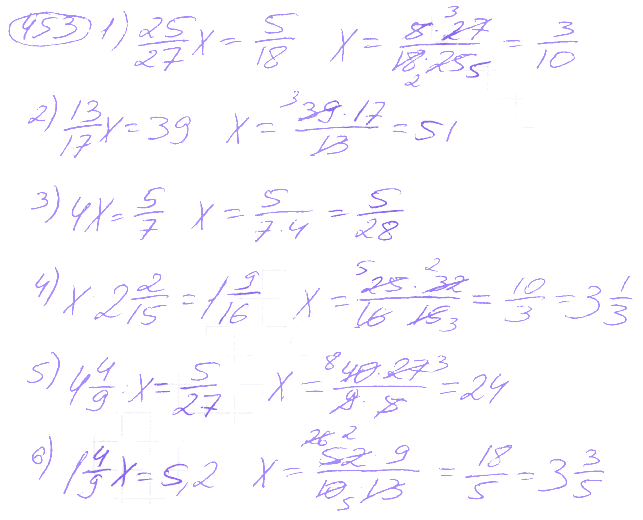 453 1) 25/27 x = 5/18 x = 5·27/18·25 = 3/10
2) 13/17 x = 39 x = 39·17/13 = 51
3) 4x = 5/7 x = 5/7·4 = 5/28
4) x · 2 2/15 = 1 9/16 x = 25·32/16 15 = 10/3 = 3 1/3
5) 4 4/9 · x = 5/27 x = 40·27/9·5 = 24
6) 1 4/9 x = 5,2 x = 52 9/10·13 = 18/5 = 3 3/5